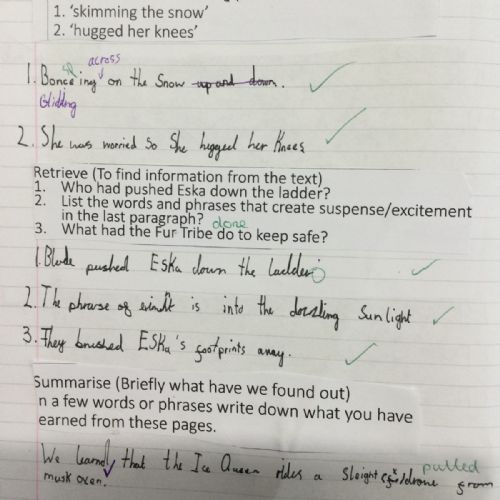 1. 'skimming the snow'
2. 'hugged her knees'
across
1. Bonceing on the snow up and down.
Glidding
2. She was worried so she hugged her Knees
Retrieve (To find information from the text)
1. Who had pushed Eska down the ladder?
2. List the words and phrases that create suspense/excitement
in the last paragraph? done
3. What had the Fur Tribe do to keep safe?
1. Blade pushed Eska down the ladder
2. The phrase of is into the dazzling Sunlight
3. They brushed Eska's footprints away.
Summarise (Briefly what have we found out)
n a few words or phrases write down what you have
earned from these pages.
We learned that the Ice Queen rides a Sleight pulled from
musk oxen.